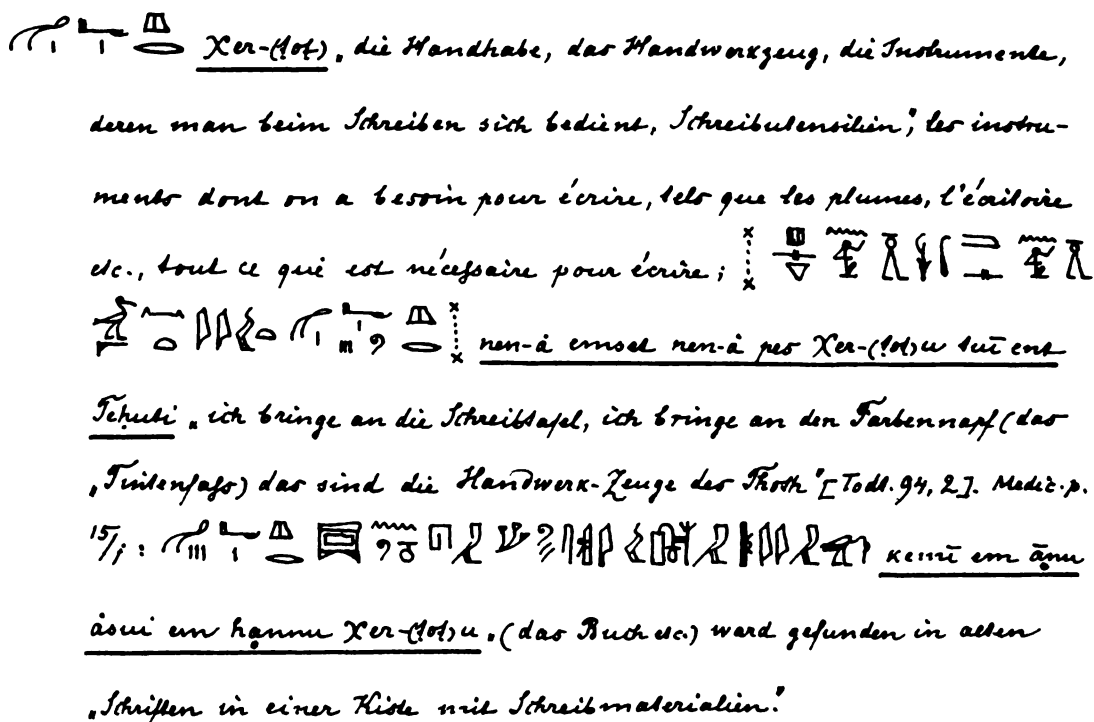 Xer-(tot) „die Handhabe, das Handwerkzeug, die Instrumente,
deren man beim Schreiben sich bedient, Schreibutensilien", les instru-
ments dont on a besoin pour écrire, tels que les plumes, l'écritoire
etc., tout ce qui est nécessaire pour écrire;
nen-à emset nen-à pes Xer-(tot)u tuī ent
Teḥuti „ich bringe an die Schreibtafel, ich bringe an den Farbennapf (das
„Tintenfass) das sind die Handwerk-Zeuge des Thoth" [Todt. 94, 2]. Medic. p.
15/1: kemī em ānu
àsui em hannu Xer-(tot)u „(das Buch etc.) ward gefunden in alten
„Schriften in einer Kiste mit Schreibmaterialien."